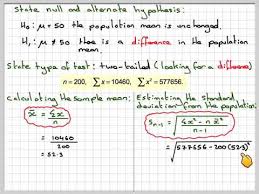 State null and alternate hypothesis:
H₀: μ = 50 the population mean is unchanged.
H₁: μ ≠ 50 there is a difference in the population mean.
State type of test: two-tailed (looking for a difference)
n = 200, ∑x = 10460, ∑x² = 577656.
Calculating the sample mean:
x̄ = Σx / n
= 10460 / 200
= 52.3
Estimating the standard deviation from the population.
Sₙ₋₁ = √((Σx² - n x̄²) / (n-1))
= √(577656 - 200(52.3)²